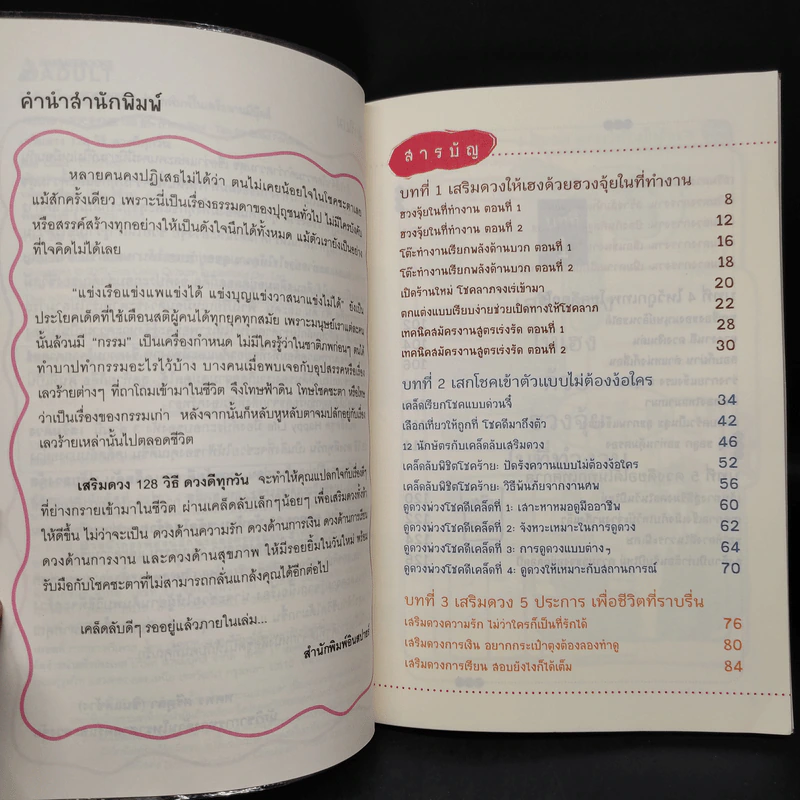 คำนำสำนักพิมพ์
หลายคนคงปฏิเสธไม่ได้ว่า ตนไม่เคยน้อยใจในโชคชะตาเลย
แม้สักครั้งเดียว เพราะนี่เป็นเรื่องธรรมดาของปุถุชนทั่วไป ไม่มีใครบังคับ
หรือสรรค์สร้างทุกอย่างให้เป็นดังใจนึกได้ทั้งหมด แม้ตัวเรายังเป็นอย่าง
ที่ใจคิดไม่ได้เลย
“แข่งเรือแข่งแพแข่งได้ แข่งบุญแข่งวาสนาแข่งไม่ได้” ยังเป็น
ประโยคเด็ดที่ใช้เตือนสติผู้คนได้ทุกยุคทุกสมัย เพราะมนุษย์เราแต่ละคน
นั้นล้วนมี “กรรม” เป็นเครื่องกำหนด ไม่มีใครรู้ว่าในชาติภพก่อนๆ ตนได้
ทำบาปทำกรรมอะไรไว้บ้าง บางคนเมื่อพบเจอกับอุปสรรคหรือเรื่อง
เลวร้ายต่างๆ ที่ถาโถมเข้ามาในชีวิต จึงโทษฟ้าดิน โทษโชคชะตา หรือโทษ
ว่าเป็นเรื่องของกรรมเก่า หลังจากนั้นก็หลับหูหลับตาจมปลักอยู่กับเรื่อง
เลวร้ายเหล่านั้นไปตลอดชีวิต
เสริมดวง 128 วิธี ดวงดีทุกวัน จะทำให้คุณแปลกใจกับเรื่องดีๆ
ที่ย่างกรายเข้ามาในชีวิต ผ่านเคล็ดลับเล็กๆน้อยๆ เพื่อเสริมดวงทั้งห้า
ให้ดีขึ้น ไม่ว่าจะเป็น ดวงด้านความรัก ดวงด้านการเงิน ดวงด้านการเรียน
ดวงด้านการงาน และดวงด้านสุขภาพ ให้มีรอยยิ้มในวันใหม่ พร้อม
รับมือกับโชคชะตาที่ไม่สามารถกลั่นแกล้งคุณได้อีกต่อไป
เคล็ดลับดีๆ รออยู่แล้วภายในเล่ม...
สำนักพิมพ์อินสปายร์
สารบัญ
บทที่ 1 เสริมดวงให้เฮงด้วยฮวงจุ้ยในที่ทำงาน
ฮวงจุ้ยในที่ทำงาน ตอนที่ 1 8
ฮวงจุ้ยในที่ทำงาน ตอนที่ 2 12
โต๊ะทำงานเรียกพลังด้านบวก ตอนที่ 1 16
โต๊ะทำงานเรียกพลังด้านบวก ตอนที่ 2 18
เปิดร้านใหม่ โชคลาภจงเร่เข้ามา 20
ตกแต่งแบบเรียบง่ายช่วยเปิดทางให้โชคลาภ 22
เทคนิคสมัครงานสูตรเร่งรัด ตอนที่ 1 28
เทคนิคสมัครงานสูตรเร่งรัด ตอนที่ 2 30
บทที่ 2 เสกโชคเข้าตัวแบบไม่ต้องง้อใคร
เคล็ดเรียกโชคแบบด่วนจี๋ 34
เลือกเที่ยวให้ถูกที่ โชคดีมาถึงตัว 42
12 นักษัตรกับเคล็ดลับเสริมดวง 46
เคล็ดลับพิชิตโชคร้าย: ปัดรังควานแบบไม่ต้องง้อใคร 52
เคล็ดลับพิชิตโชคร้าย: วิธีพ้นภัยจากงานศพ 56
ดูดวงพ่วงโชคดีเคล็ดที่ 1: เสาะหาหมอดูมืออาชีพ 60
ดูดวงพ่วงโชคดีเคล็ดที่ 2: จังหวะเหมาะในการดูดวง 62
ดูดวงพ่วงโชคดีเคล็ดที่ 3: การดูดวงแบบต่างๆ 64
ดูดวงพ่วงโชคดีเคล็ดที่ 4: ดูดวงให้เหมาะกับสถานการณ์ 70
บทที่ 3 เสริมดวง 5 ประการ เพื่อชีวิตที่ราบรื่น
เสริมดวงความรัก ไม่ว่าใครก็เป็นที่รักได้ 76
เสริมดวงการเงิน อยากกระเป๋าตุงต้องลองทำดู 80
เสริมดวงการเรียน สอบยังไงก็ได้เต็ม 84